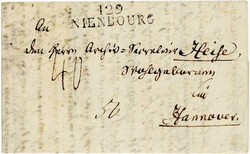 129
NIENBOURG
An
den Herrn Archiv-Secretair Heise,
Wohlgeboren
in
Hannover.